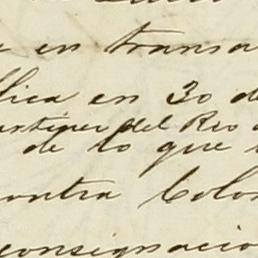 en transa
lica en 30 de
artinez del Rio
de lo que
contra Colo
consignacio